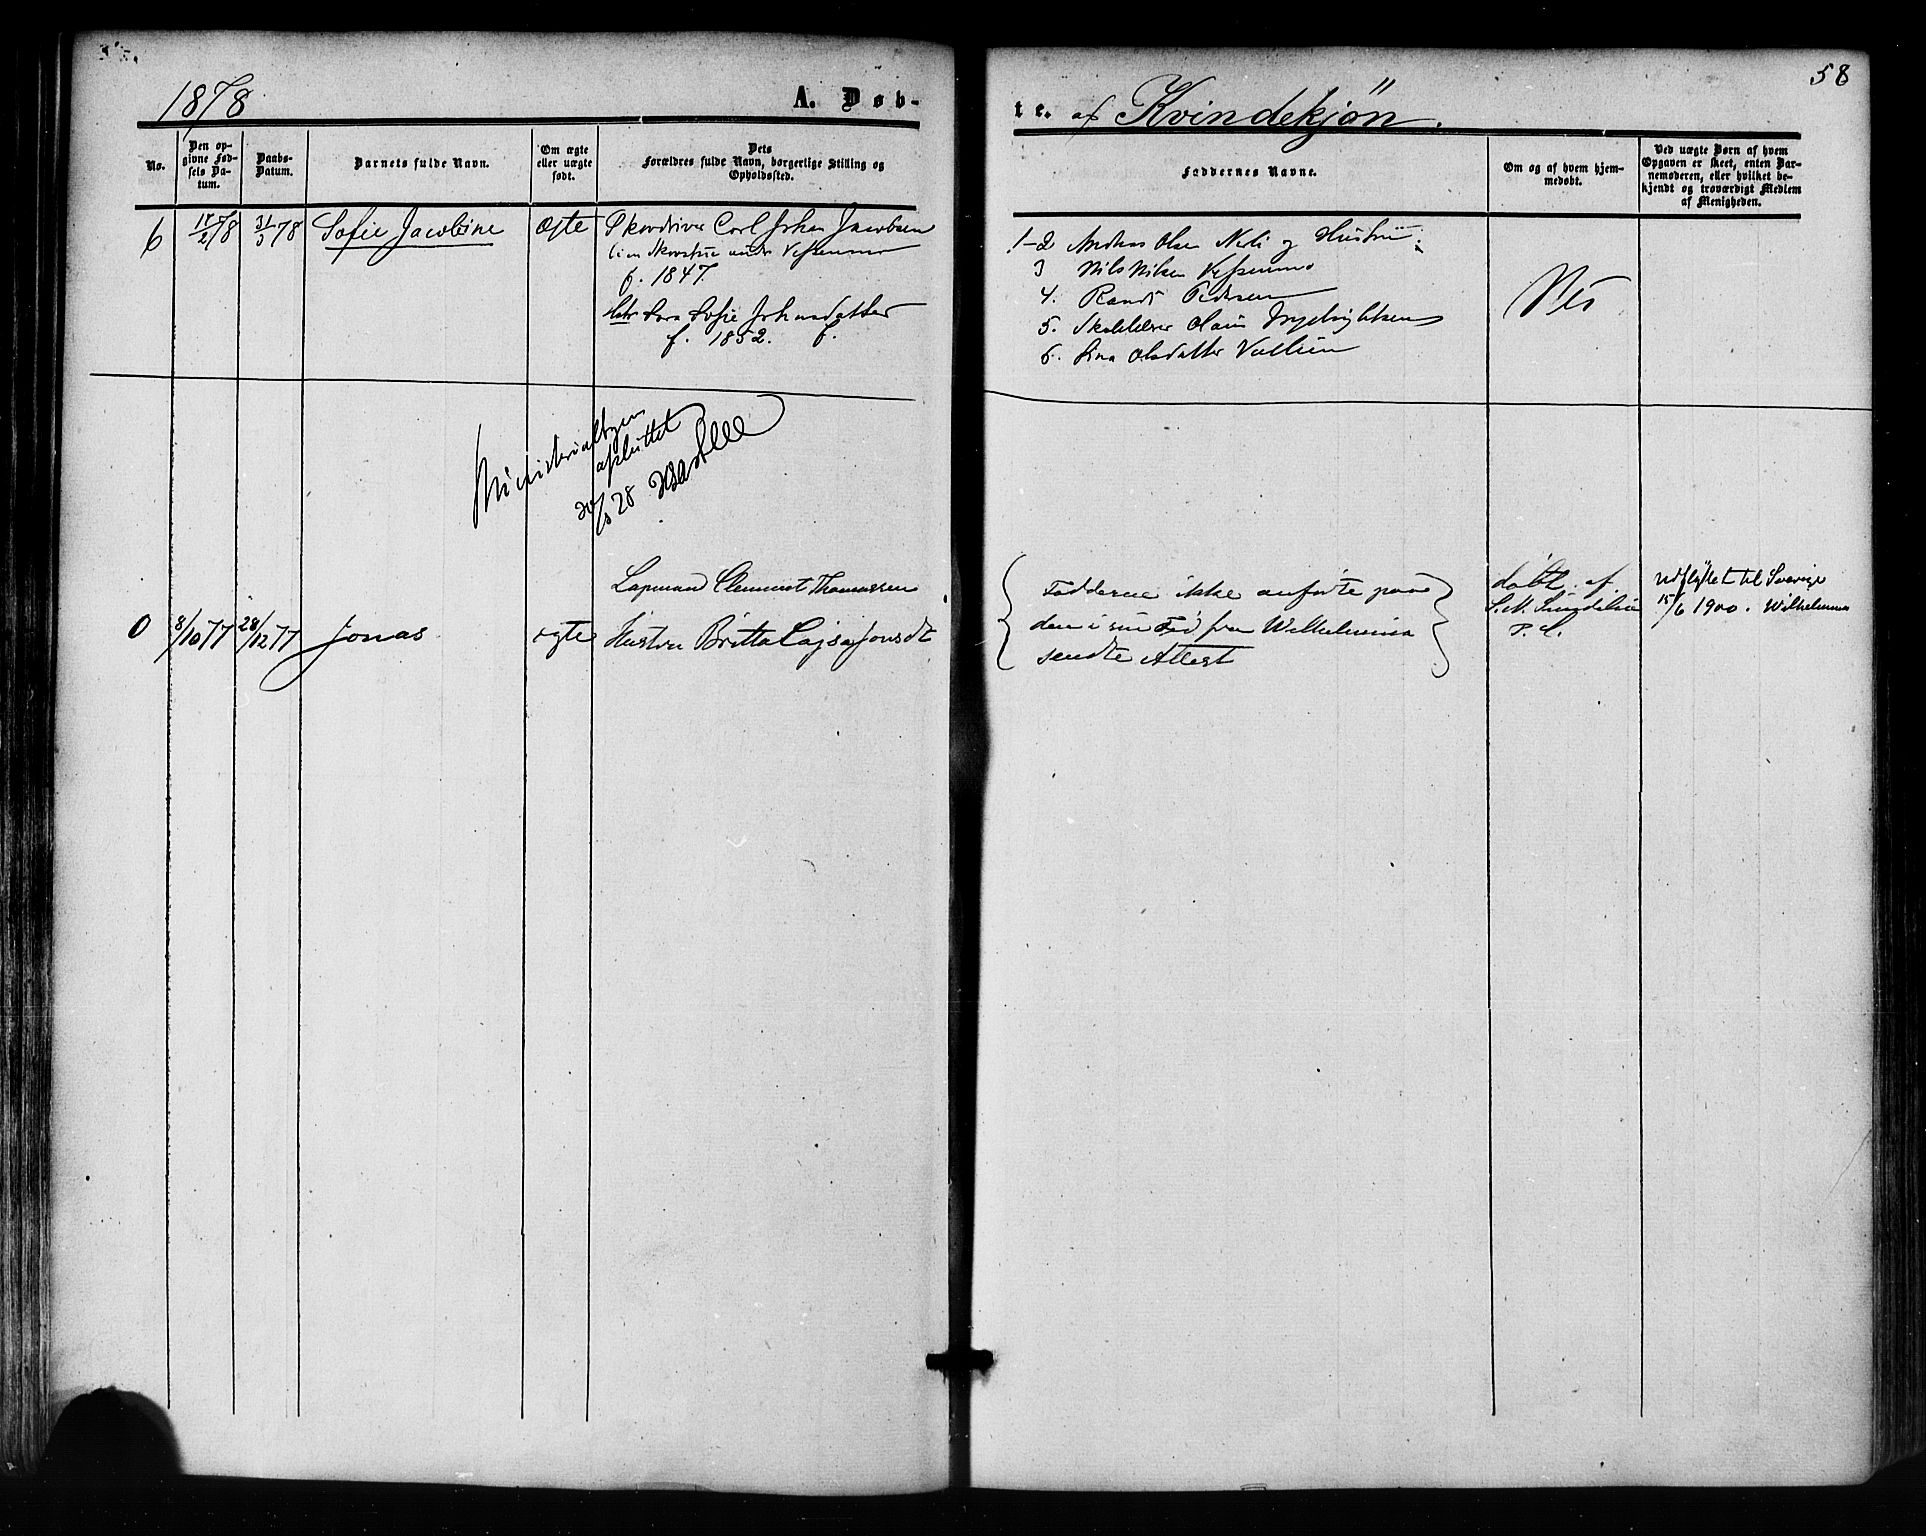 58
1878
A. Døb-
te. af Kvindekjön.
No.
Den op-
givne Fød-
sels Da-
tum.
Daabs-
Datum.
Barnets fulde Navn.
Om ægte
eller uægte
født.
Dets
Forældres fulde Navn, borgerlige Stilling og
Opholdssted.
Faddernes Navne.
Om og af hvem hjem-
medøbt.
Ved uægte Børn af hvem
Opgaven er skeet, enten Bar-
nemoderen, eller hvilket be-
kjendt og troværdigt Medlem
af Menigheden.
6
17/2 78
31/3 78
Sofie Jacobine
Ægte
Carl Johan Jacobsen
f. 1847.
Sara Sofie Johnsdatter
f. 1852. f.
1-2 Andreas Olsen og Hustru
3 Nils Nilsen
4. Pedersen
5.
6. Olsdatter
Ministerialbogen
afsluttet
28
0
8/10 77
28/12 77
Jonas
ægte
Lapmand Clemmet Thomassen
Hustru Britta Cajsa Jonsdt
Fadderne ikke anførte paa
den i sin Tid fra Wilhelmina
sendte Attest
døbt af
P. A.
Udflyttet til Sverige
15/6 1900. Wilhelmina